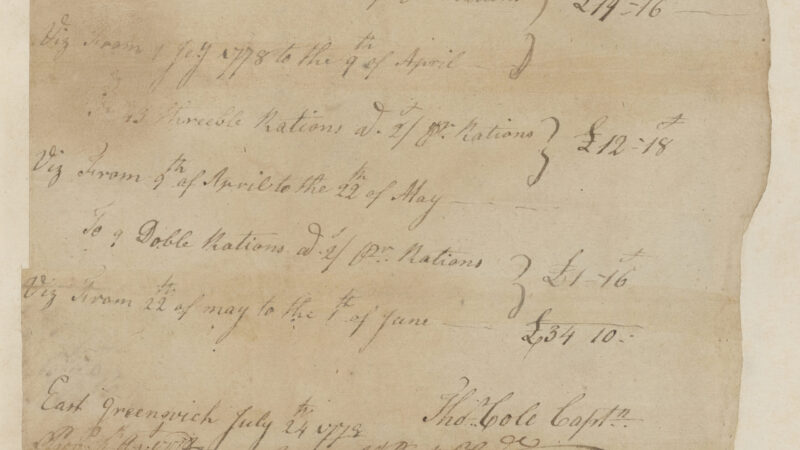 Rations } £19=16
Viz From 1 1778 to the 9th of April
To 43 threeble Rations at 2/ pr Rations } £12=18
Viz From 9th of April to the 22 of May
To 9 Doble Rations at 2/ pr Rations } £1=16
Viz From 22 of may to the 1th of June
£34 10=
East greenwich July th 24 1778 Thos Cole Captn